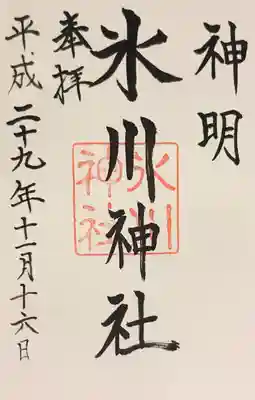 神明
氷川神社
奉拝
平成二十九年十一月十六日
氷川
神社